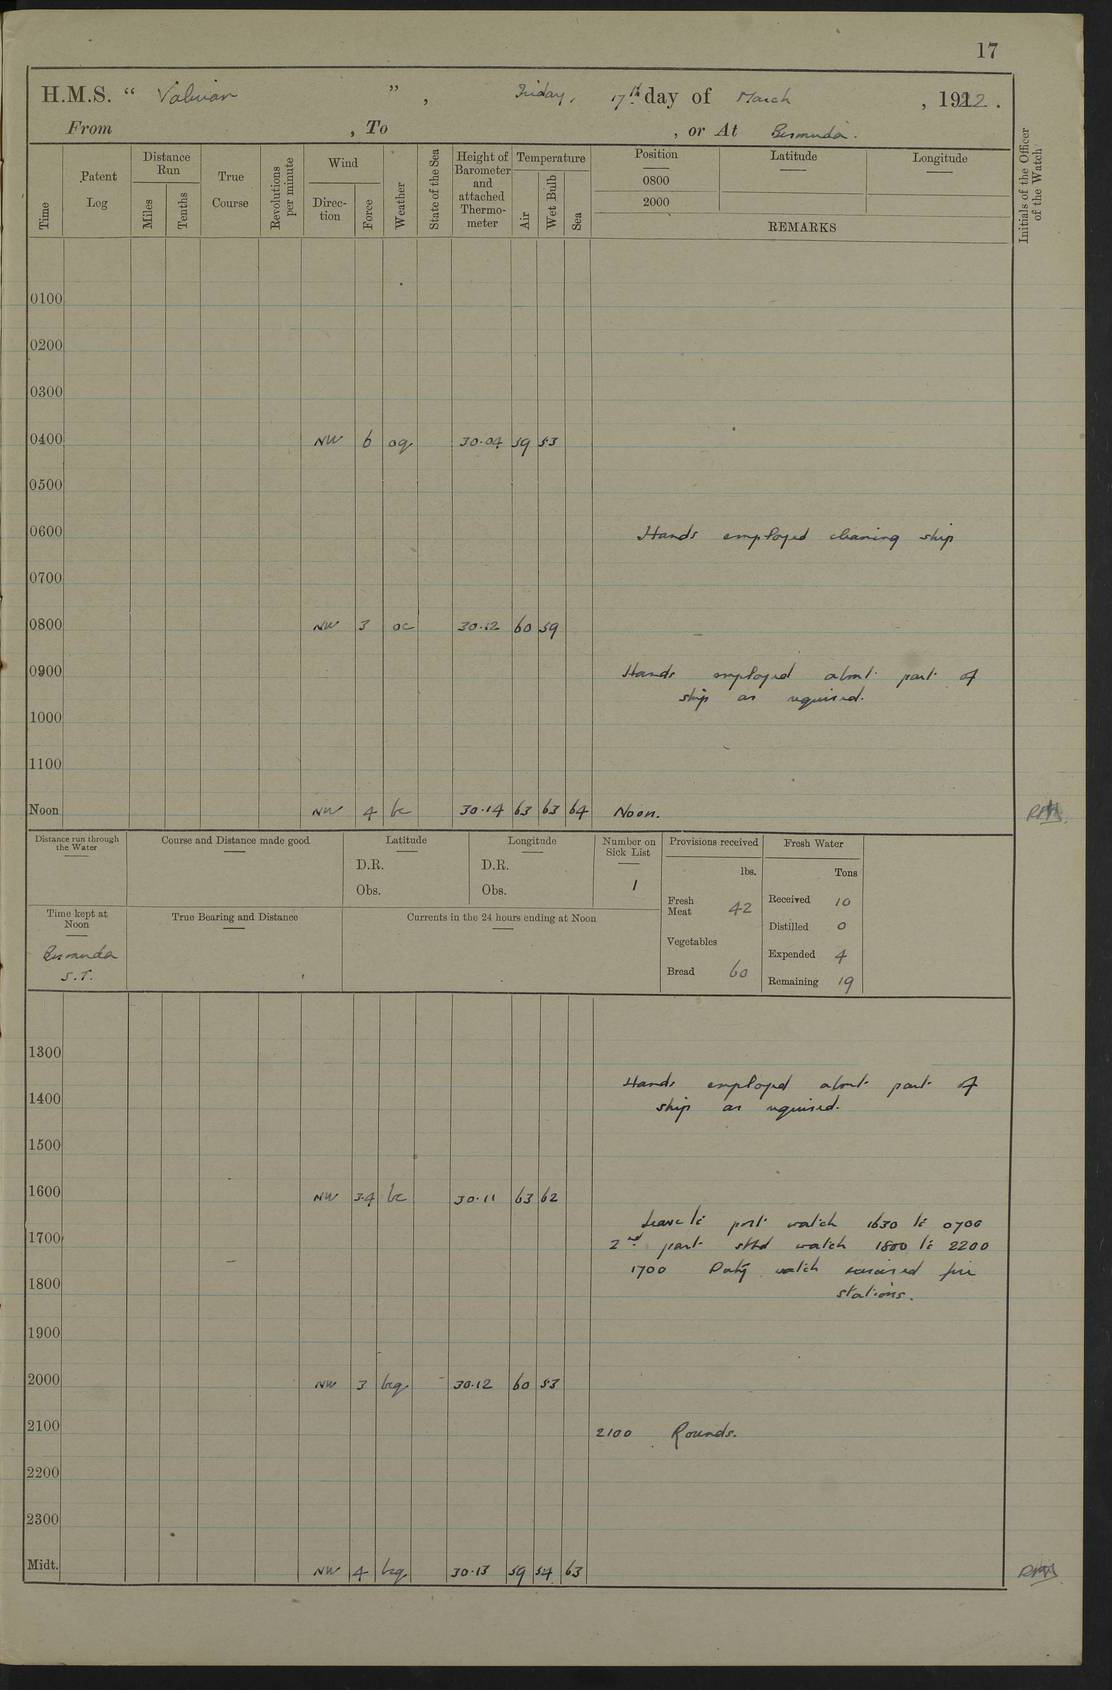 17
H.M.S. “ Valerian ” , Friday, 17th day of March , 1922 .
From , To , or At Bermuda.
Time
Patent Log
Distance Run
Miles
Tenths
True Course
Revolutions per minute
Wind
Direc- tion
Force
Weather
State of the Sea
Height of Barometer and attached Thermo- meter
Temperature
Air
Wet Bulb
Sea
Position Latitude Longitude
0800
2000
REMARKS
Initials of the Officer of the Watch
0100
0200
0300
0400 NW 6 oq 30.04 59 53
0500
0600 Hands employed cleaning ship
0700
0800 NW 3 oc 30.12 60 59
0900 Hands employed about part of
ship as required.
1000
1100
Noon NW 4 bc 30.14 63 63 64 Noon.
Distance run through the Water
Course and Distance made good
Latitude
D.R.
Obs.
Longitude
D.R.
Obs.
Number on Sick List
1
Provisions received
lbs.
Fresh Meat 42
Vegetables
Bread 60
Fresh Water
Tons
Received 10
Distilled 0
Expended 4
Remaining 19
Time kept at Noon
Bermuda
S.T.
True Bearing and Distance
Currents in the 24 hours ending at Noon
1300
Hands employed about part of
1400 ship as required.
1500
1600 NW 3.4 bc 30.11 63 62
Leave to port watch 1630 to 0700
1700 2nd part stbd watch 1800 to 2200
1700 Duty watch exercised fire
1800 stations.
1900
2000 NW 3 bcq 30.12 60 53
2100 2100 Rounds.
2200
2300
Midt. NW 4 bcq 30.13 59 54 63